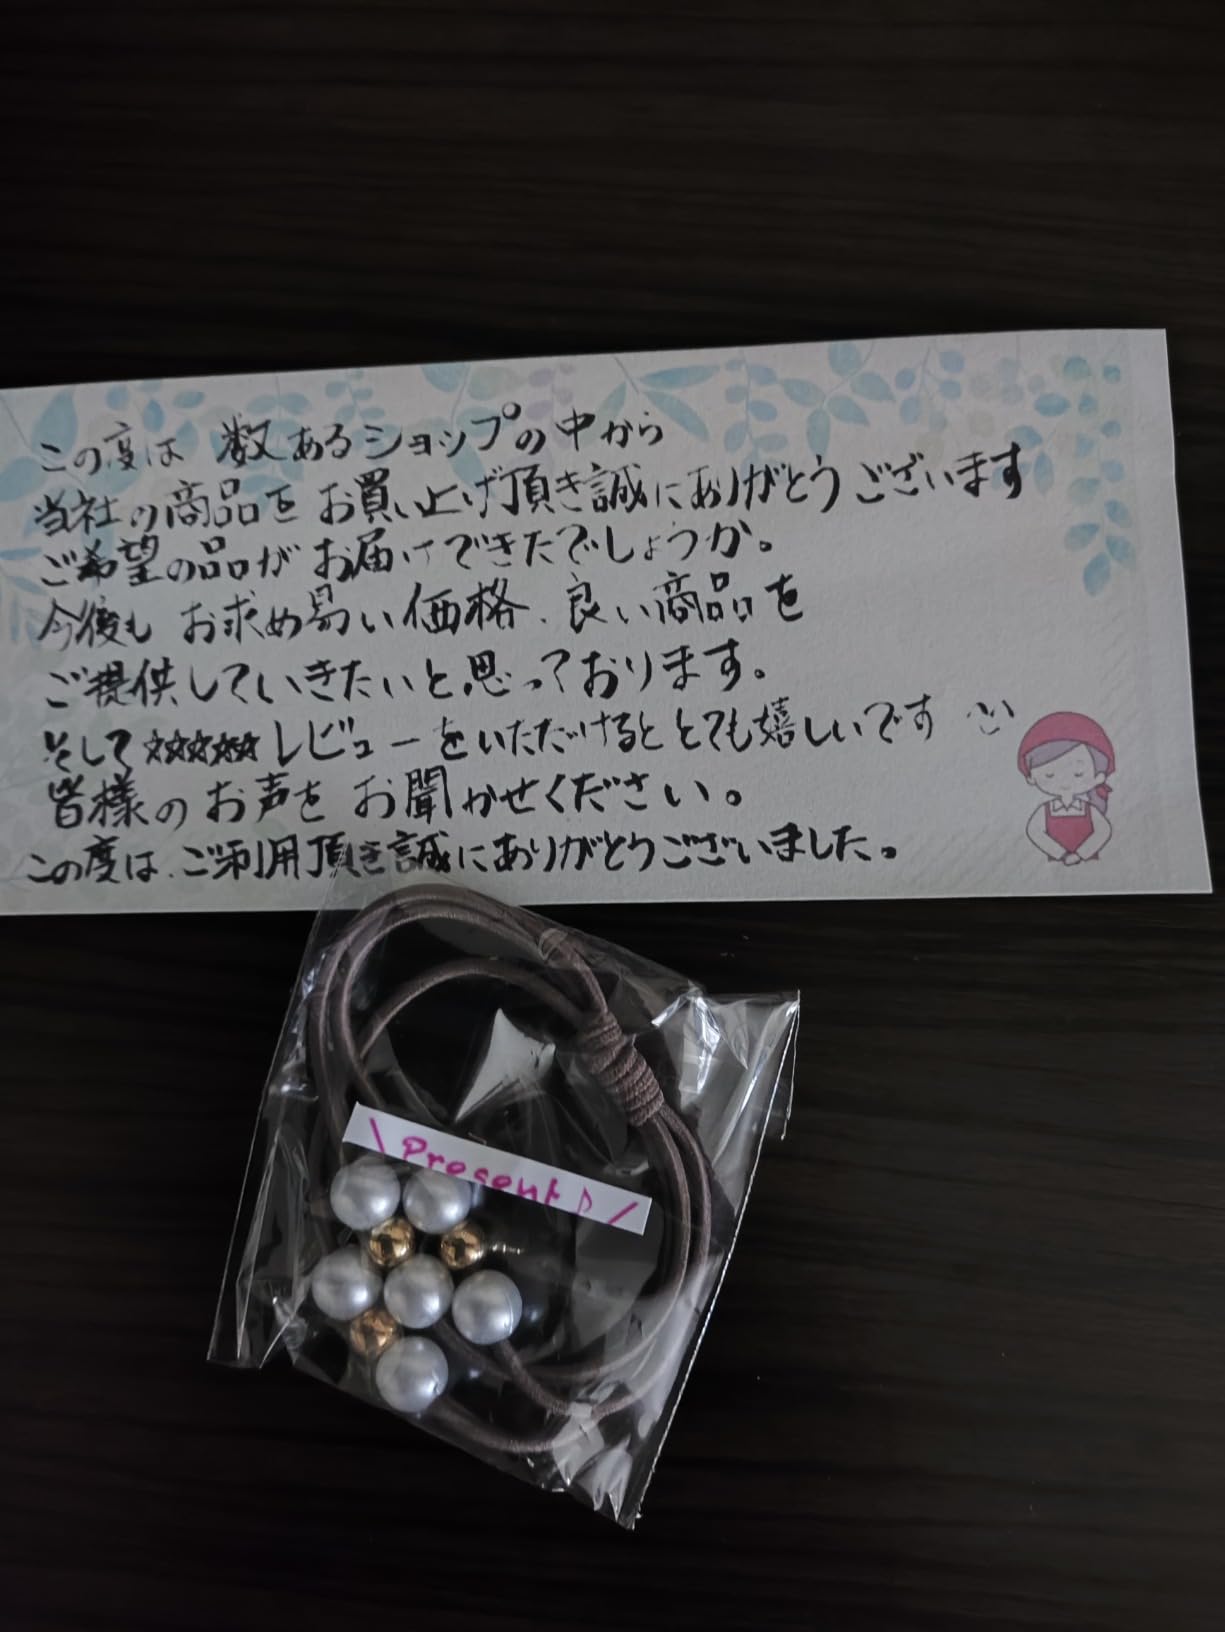 この度は 数あるショップの中から
当社の商品をお買い上げ頂き誠にありがとうございます
ご希望の品がお届けできたでしょうか。
今後も お求め易い価格、良い商品を
ご提供していきたいと思っております。
そして☆☆☆☆☆レビューをいただけるととても嬉しいです
皆様のお声をお聞かせください。
この度は、ご利用頂き誠にありがとうございました。
\ Present♪ /